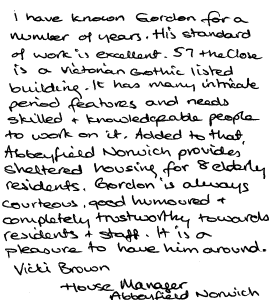 I have known Gordon for a
number of years. His standard
of work is excellent. 57 the Close
is a Victorian Gothic listed
building. It has many intricate
period features and needs
skilled + knowledgeable people
to work on it. Added to that,
Abbeyfield Norwich provides
sheltered housing for 8 elderly
residents. Gordon is always
courteous, good humoured +
completely trustworthy towards
residents + staff. It is a
pleasure to have him around.
Vicki Brown
House Manager
Abbeyfield Norwich